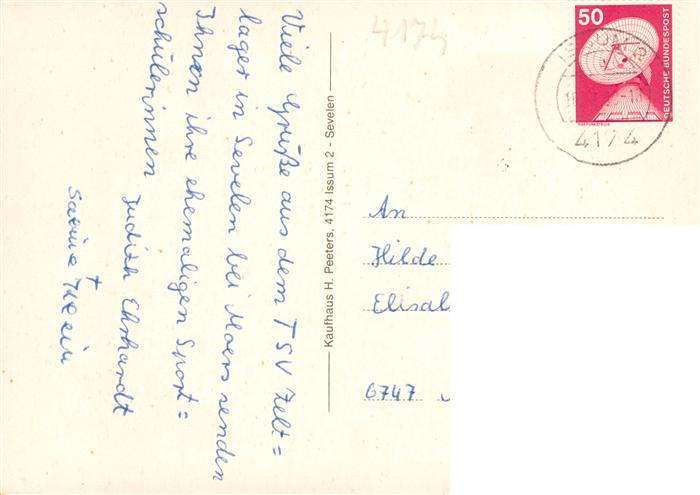 Viele Grüße aus dem TSV Zelt=
lager in Sevelen bei Moers senden
Ihnen ihre ehemaligen Sport=
schülerinnen
Judith Ehrhardt
Sabine Klein
Kaufhaus H. Peeters, 4174 Issum 2 - Sevelen
4174
50
DEUTSCHE BUNDESPOST
ISSUM
4174
An
Hilde
Elisab
6747